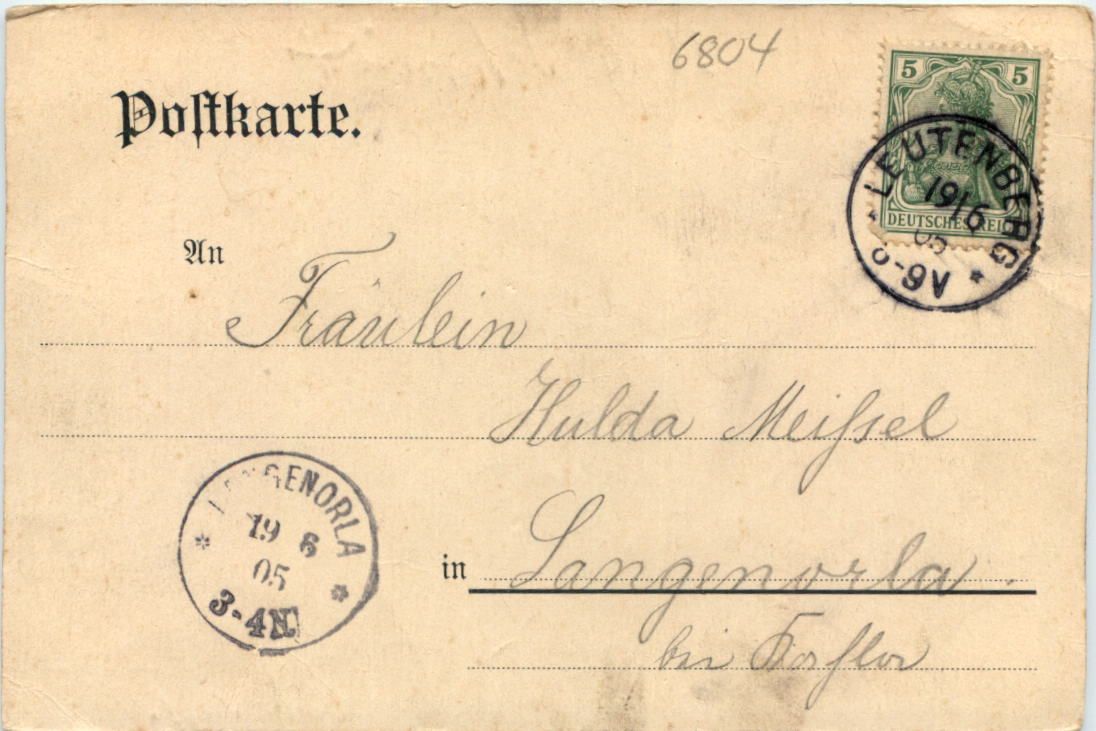 6804
Postkarte.
5 5
DEUTSCHES REICH
LEUTENBERG
19 6
05
8-9V
An
Fräulein
Hulda Meißel
LANGENORLA
19 6
05
3-4N.
in Langenorla.
bei